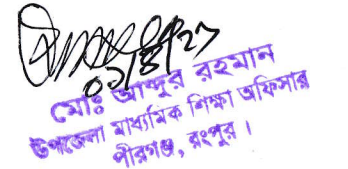 ০১/৪/২৭
মোঃ আব্দুর রহমান
উপজেলা মাধ্যমিক শিক্ষা অফিসার
পীরগঞ্জ, রংপুর ।